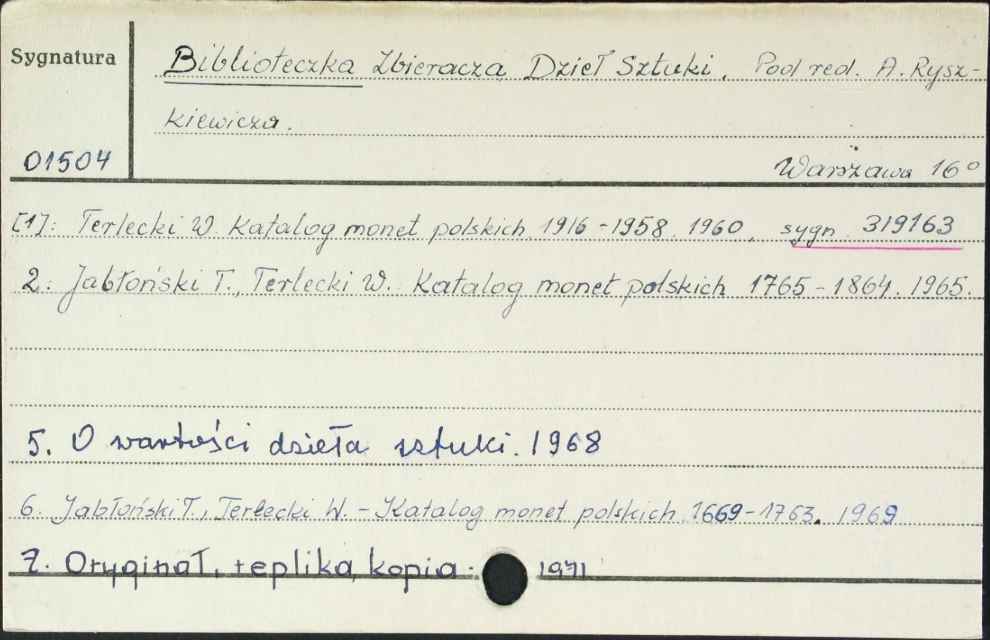 Sygnatura
Biblioteczka Zbieracza Dzieł Sztuki. Pod red. A. Rysz-
kiewicza.
01504
Warszawa 16°
[1]: Terlecki W. Katalog monet polskich 1916-1958. 1960, sygn. 319163
2: Jabłoński T., Terlecki W. Katalog monet polskich 1765-1864. 1965.
5. O wartości dzieła sztuki. 1968
6. Jabłoński T., Terlecki W. - Katalog monet polskich 1669-1763. 1969
7. Oryginał, replika, kopia. 1971